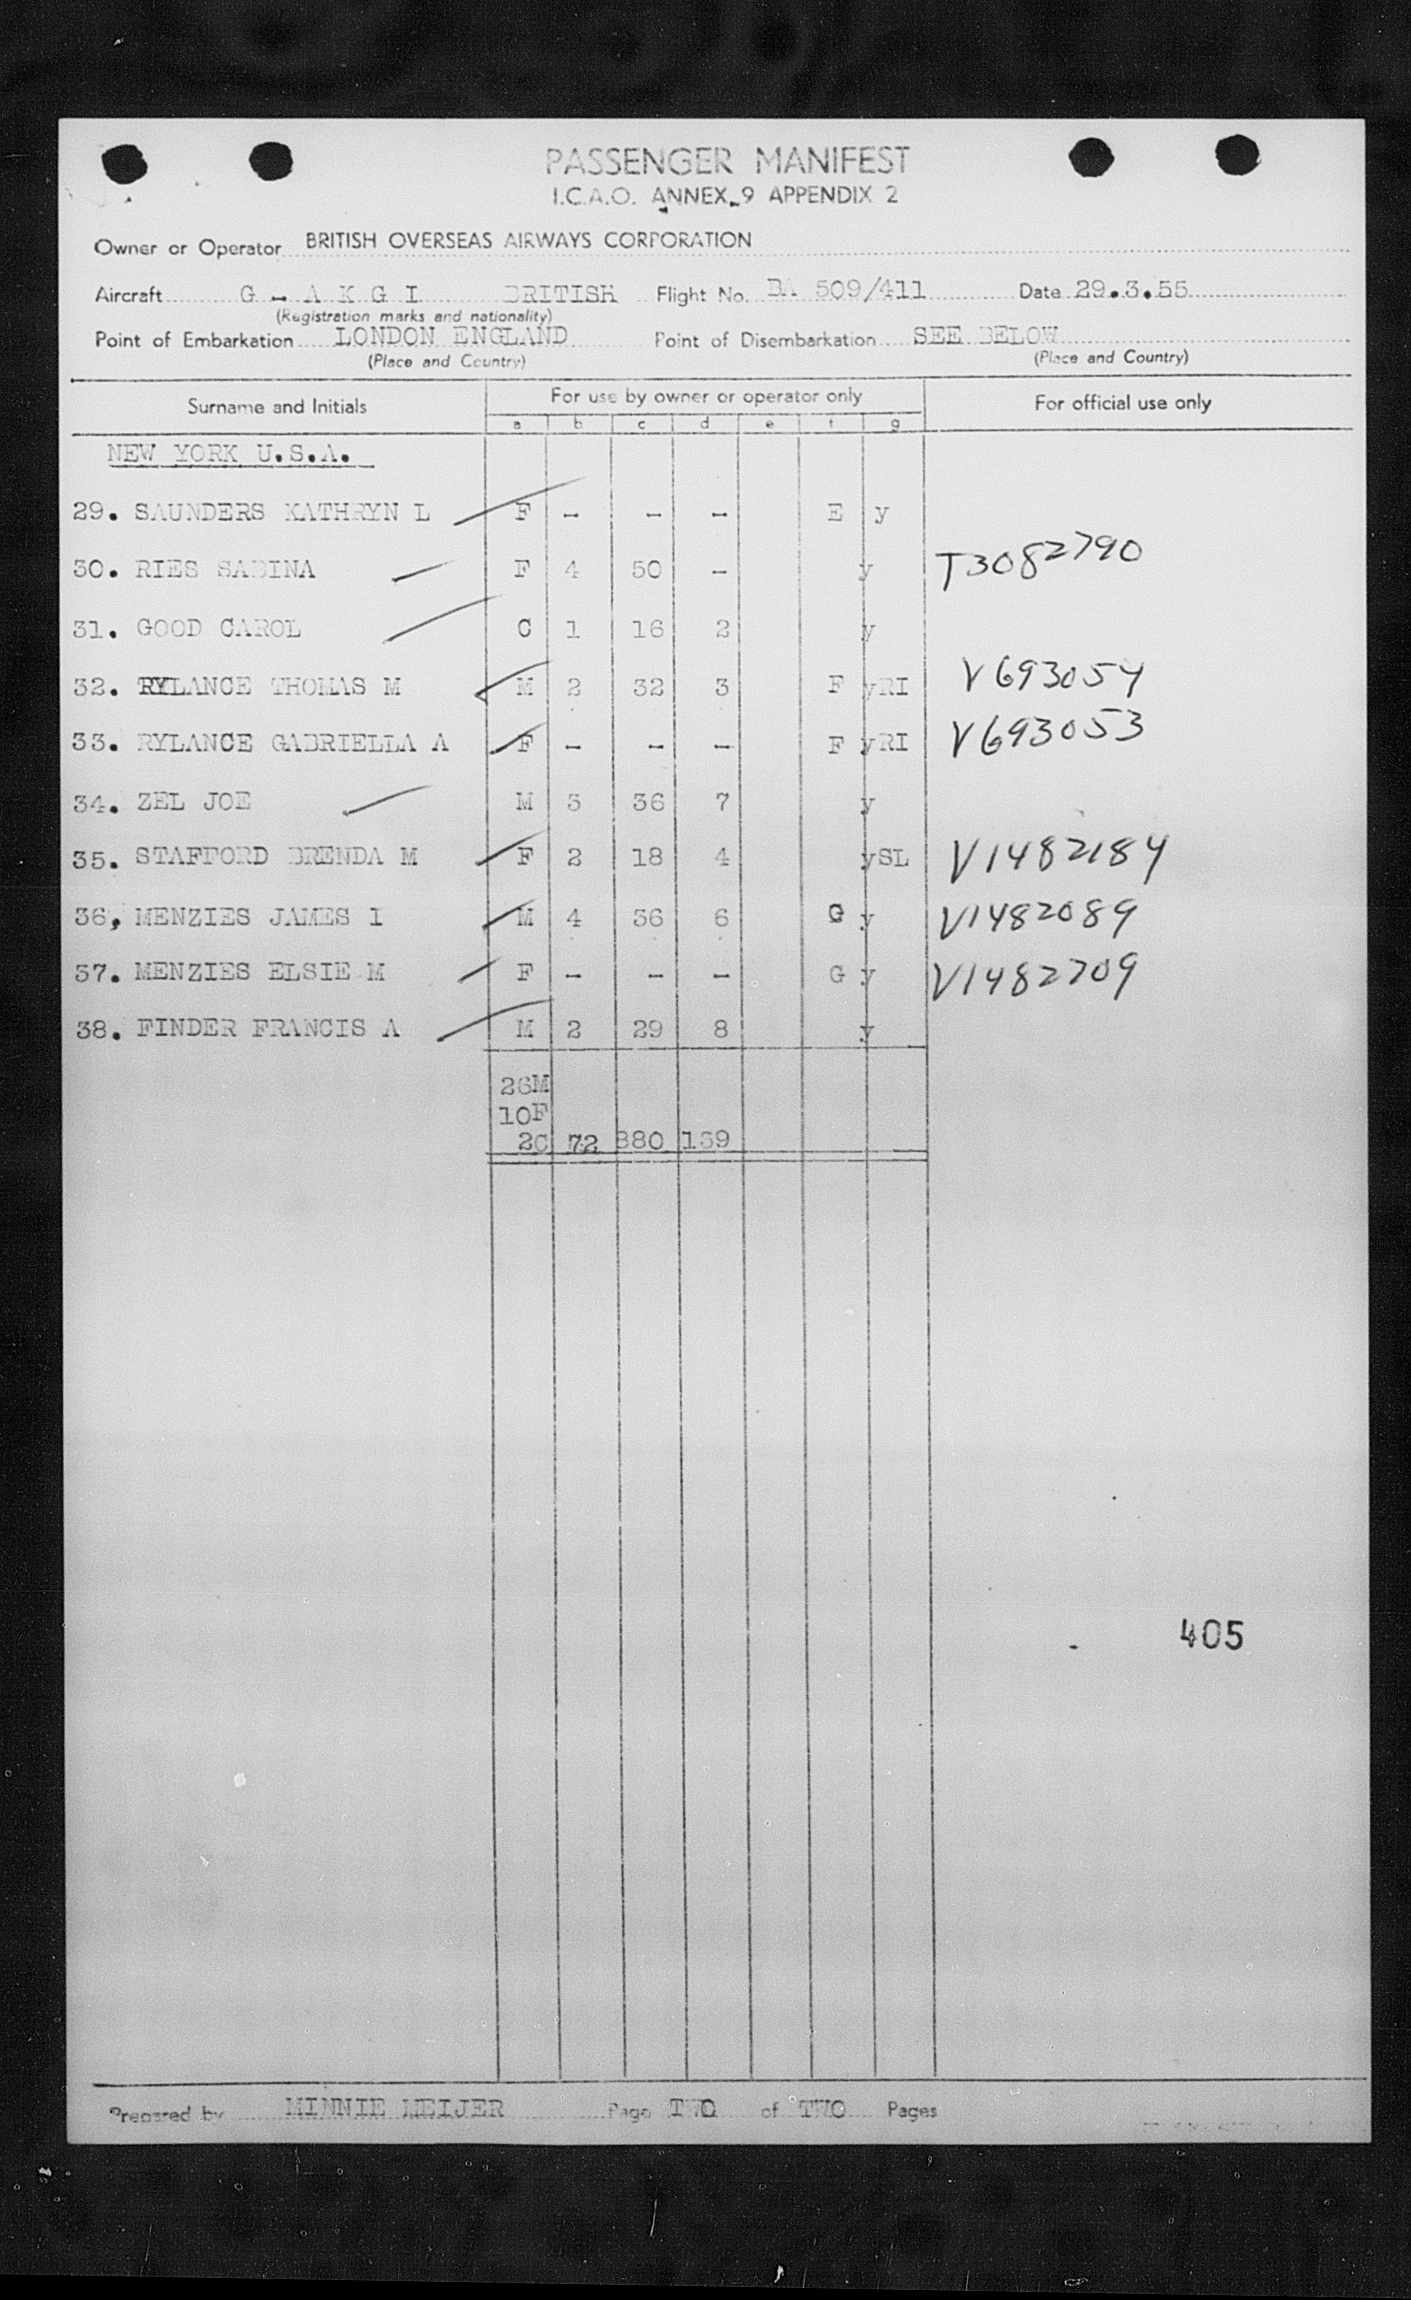 PASSENGER MANIFEST
I.C.A.O. ANNEX 9 APPENDIX 2
Owner or Operator BRITISH OVERSEAS AIRWAYS CORPORATION
Aircraft G - A K G I BRITISH Flight No. BA 509/411 Date 29.3.55
(Registration marks and nationality)
Point of Embarkation LONDON ENGLAND Point of Disembarkation SEE BELOW
(Place and Country) (Place and Country)
Surname and Initials For use by owner or operator only For official use only
a b c d e f g
NEW YORK U.S.A.
29. SAUNDERS KATHRYN L F - - - E y
30. RIES SABINA F 4 50 - y T3082790
31. GOOD CAROL C 1 16 2 y
32. RYLANCE THOMAS M M 2 32 3 F yRI V693054
33. RYLANCE GABRIELLA A F - - - F yRI V693053
34. ZEL JOE M 3 36 7 y
35. STAFFORD BRENDA M F 2 18 4 ySL V1482184
36, MENZIES JAMES I M 4 36 6 G y V1482089
37. MENZIES ELSIE M F - - - G y V1482709
38. FINDER FRANCIS A M 2 29 8 y
26M
10F
2C 72 880 139
405
Prepared by MINNIE MEIJER Page TWO of TWO Pages